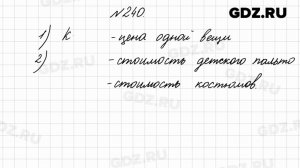 №240.
GDZ.RU
1) К - цена одной вещи
2) - стоимость детского пальто
- стоимость костюмов.
GDZ.RU